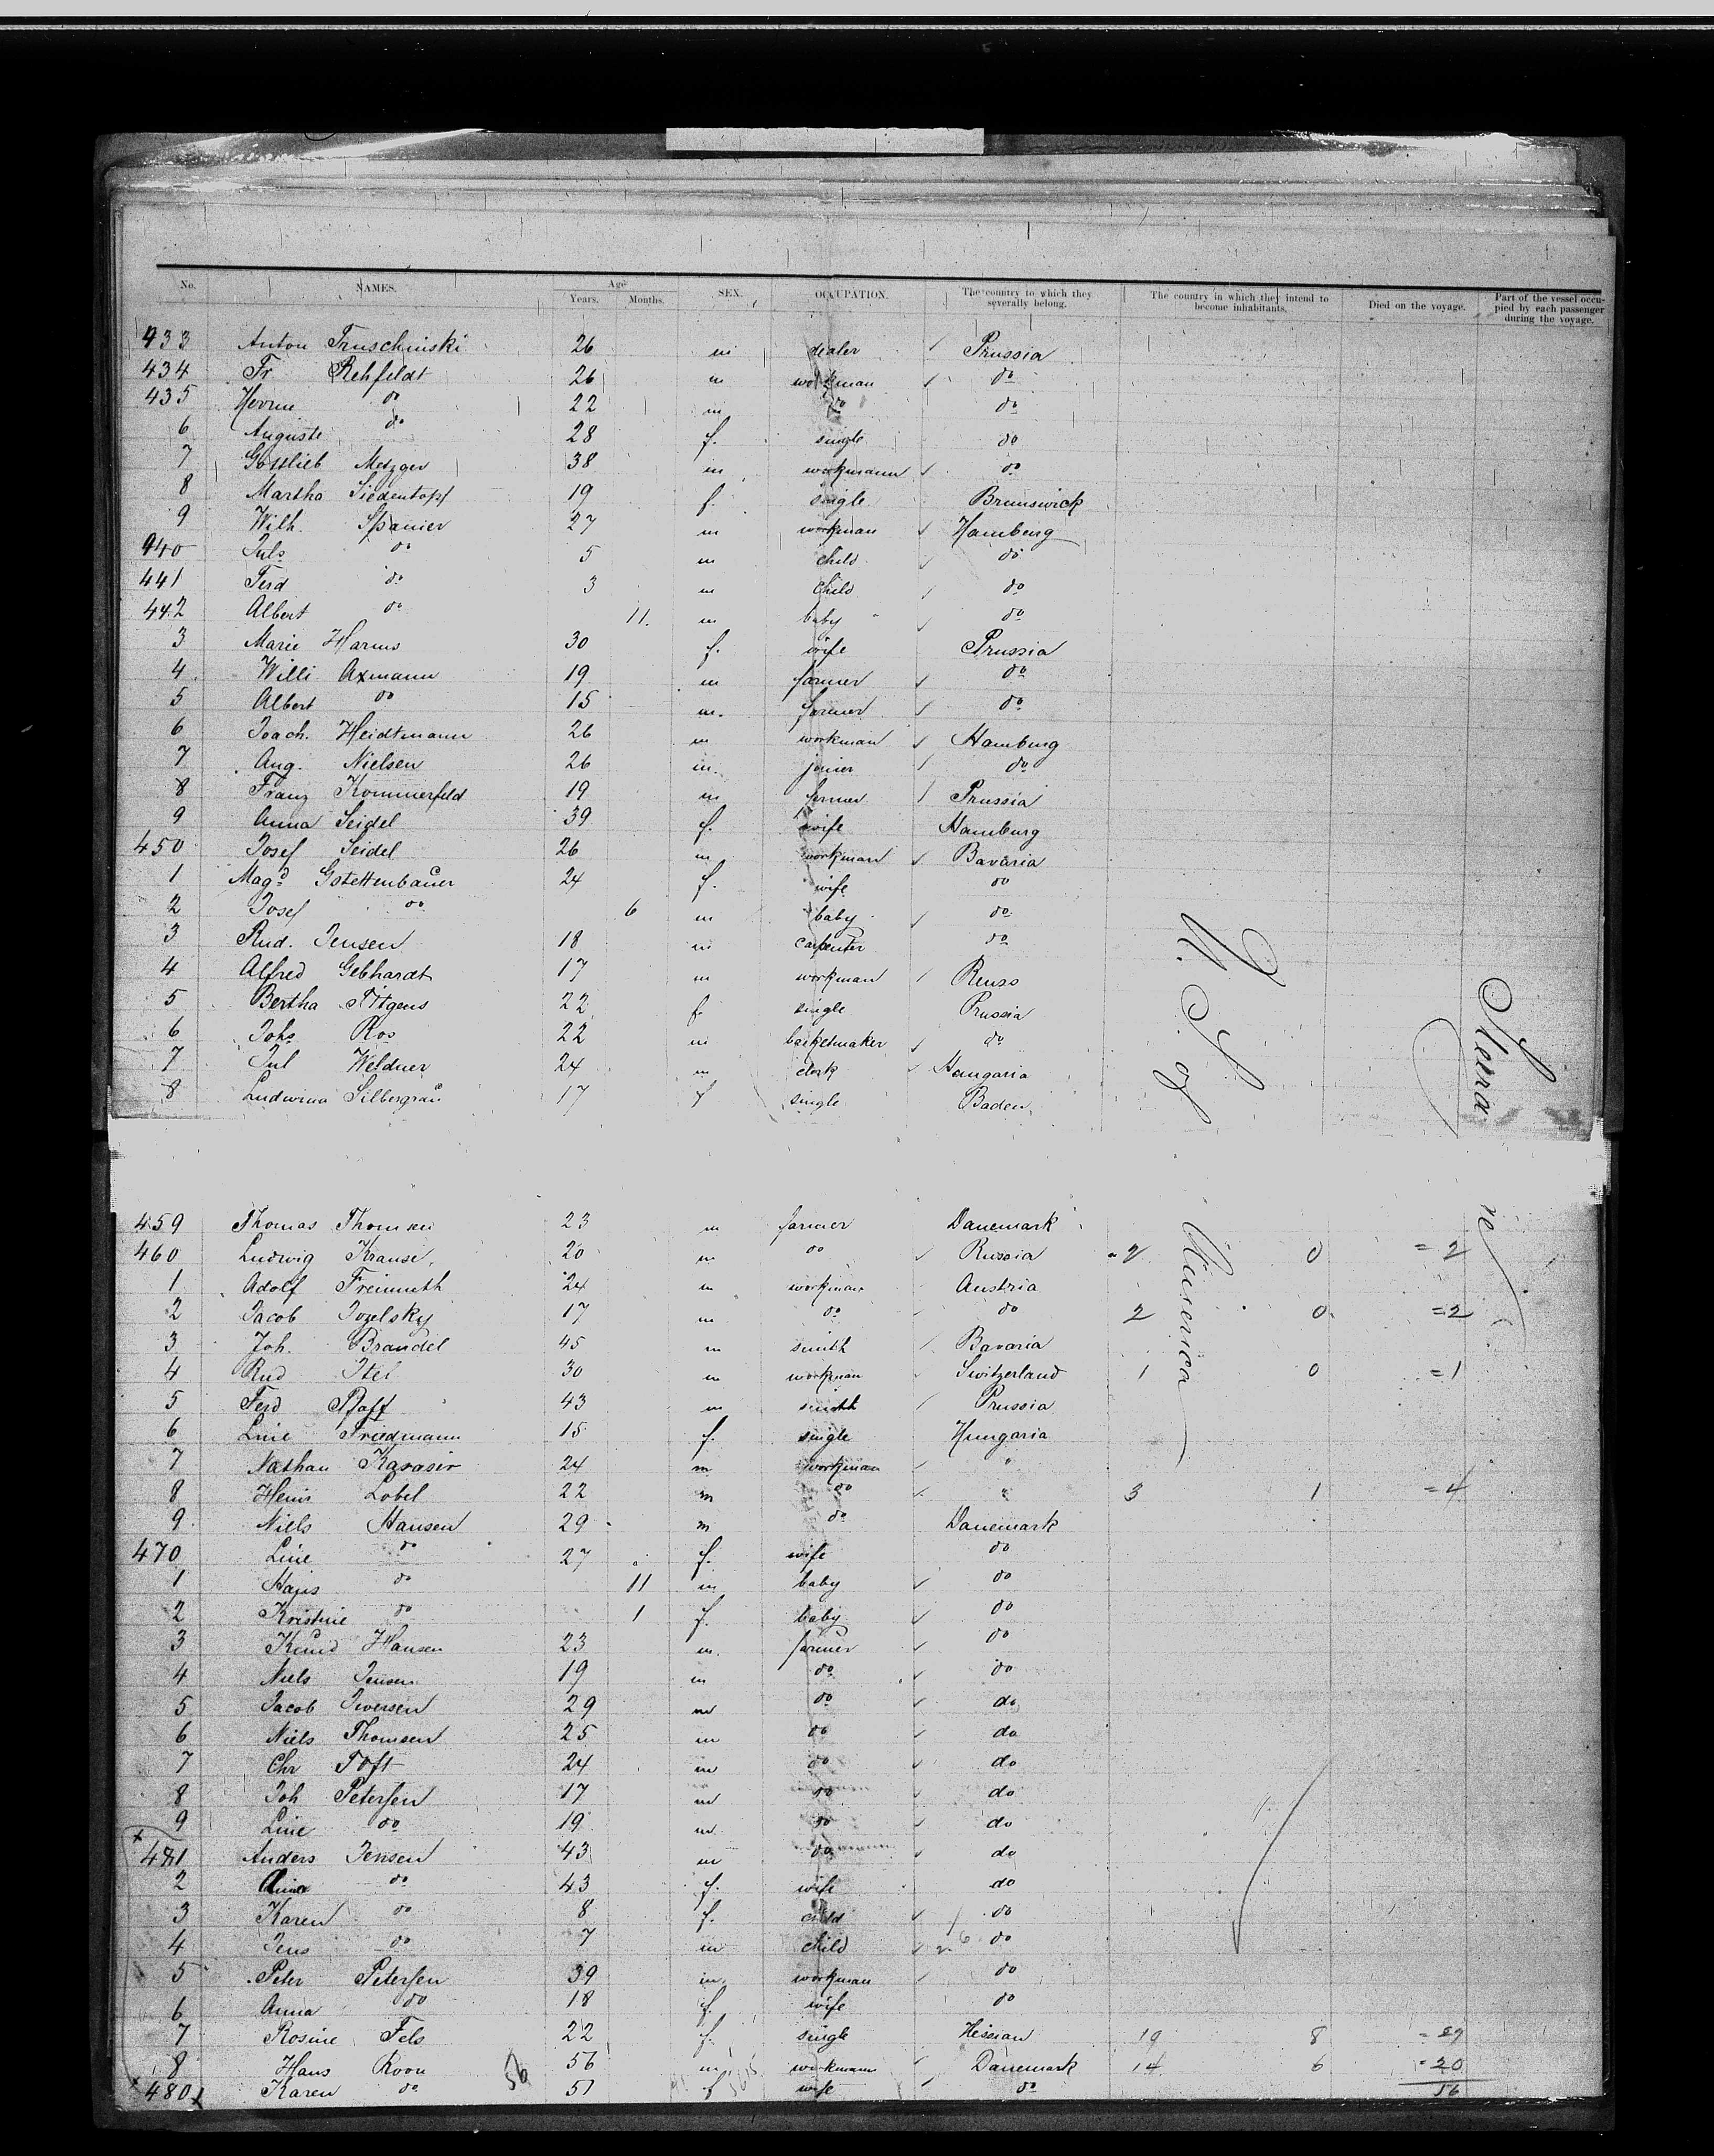 No. NAMES. Age Years. Months. SEX. OCCUPATION. The country to which they severally belong. The country in which they intend to become inhabitants. Died on the voyage. Part of the vessel occupied by each passenger during the voyage.
433 Anton Truschinski 26 m dealer Prussia
434 Fr Rehfeldt 26 m workman do
435 do 22 m do do
6 Auguste do 28 f. single do
7 Gottlieb Metzger 38 m workmann do
8 Martha Siedentopf 19 f. single Brunswick
9 Wilh. Spanier 27 m workman Hamburg
440 Juls do 5 m child do
441 Ferd do 3 m child do
442 Albert do 11. m baby do
3 Marie Harms 30 f. wife Prussia
4 Willi Axmann 19 m farmer do
5 Albert do 15 m. farmer do
6 Joach. Heidtmann 26 m workman Hamburg
7 Aug. Nielsen 26 m joiner do
8 Franz Kommerfeld 19 m farmer Prussia
9 Anna Seidel 39 f. wife Hamburg
450 Josef Seidel 26 m workman Bavaria
1 Magd Gstettenbauer 24 f. wife do
2 Josef do 6 m baby do
3 Rud. Jensen 18 m carpenter do
4 Alfred Gebhardt 17 m workman Reuss
5 Bertha Titgens 22 f. single Prussia
6 Johs Ros 22 m basketmaker do
7 Jul Weldner 24 m clerk Hungaria
8 Silbergrau 17 f single Baden
U. S. of America
459 Thomas Thomsen 23 m farmer Danemark
460 Ludwig Krause 20 m do Russia 2 0 = 2
1 Adolf Freimuth 24 m workman Austria
2 Jacob Jozelsky 17 m do do 2 0 = 2
3 Joh. Brandel 45 m smith Bavaria
4 Rud Itel 30 m workman Switzerland 1 0 = 1
5 Ferd Pfaff 43 m smith Prussia
6 Line Friedmann 15 f. single Hungaria
7 Nathan 24 m workman "
8 Lobel 22 m do " 3 1 = 4
9 Niels Hansen 29 m do Danemark
470 Line do 27 f. wife do
1 Hans do 11 m baby do
2 Kristine do 1 f. baby do
3 Knud Hansen 23 m. farmer do
4 Niels Jensen 19 m do do
5 Jacob Iwersen 29 m do do
6 Niels Thomsen 25 m do do
7 Chr Toft 24 m do do
8 Joh Petersen 17 m do do
9 Line do 19 m do do
481 Anders Jensen 43 m do do
2 do 43 f. wife do
3 Karen do 8 f. child do
4 Jens do 7 m child do
5 Peter Petersen 39 m workman do
6 Anna do 18 f. wife do
7 Rosine Fels 22 f. single Hessian 19 8
8 Hans Roou 56 m workmann Danemark 14 6 = 20
480 Karen do 51 f wife do 56